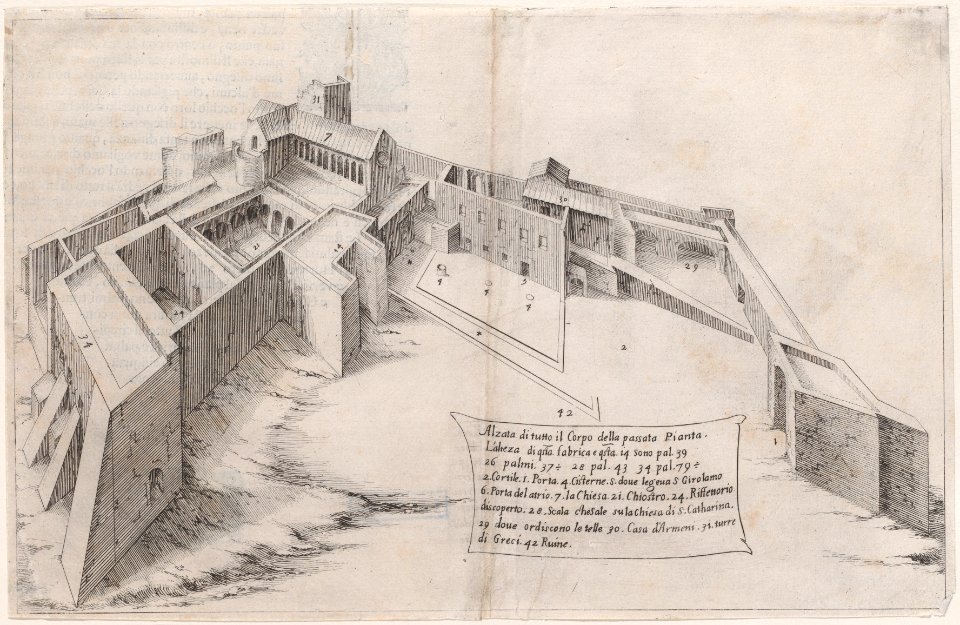 31
7
30
21
14
29
24
4
4
5
4
34
2
42
1
Alzata di tutto il Corpo della passata Pianta.
L'alteza di qsta fabrica e qsta. 14 sono pal. 39
26 palmi. 37÷ 28 pal. 43 34 pal. 79÷
2. Cortile. 1. Porta. 4. Cisterne. 5. doue legeua S Girolamo
6. Porta del atrio. 7. la Chiesa. 21. Chiostro. 24. Riffettorio
discoperto. 28. Scala che sale su la Chiesa di S. Catharina.
29 doue ordiscono le telle 30. Casa d'Armeni. 31. turre
di Greci. 42 Ruine.